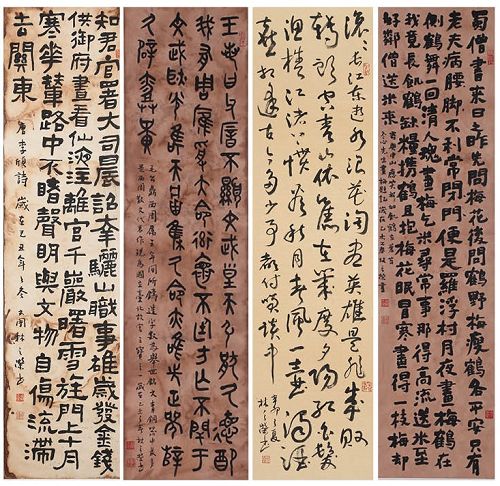 蜀僧書來日之昨先問梅花後問鶴野梅瘦鶴各平安只有
老夫病腰脚不利常閉門便是羅浮村月夜畫梅鶴在
側鶴舞一回清人魂畫梅乞米尋常事那得高流送米至
我竟長飢鶴缺糧携鶴且抱梅花眠冒寒畫得一枝梅却
好鄰僧送米來
滾滾長江東逝水浪花淘盡英雄是非成敗
轉頭空青山依舊在幾度夕陽紅白髮
漁樵江渚上慣看秋月春風一壺濁酒
喜相逢古今多少事都付笑談中
辛卯之夏
林之榮書
王若曰父厝不顯文武皇天弘猒厥德配
我有周膺受大命率懷不廷方亡不閈于
文武耿光唯天將集厥命亦唯先正襄辥
厥辟
知君官署大司農詔幸驪山職事雄歲發金錢
供御府晝看仙液注離宮千巖曙雪旌門上十月
寒花輦路中不睹聲明與文物自傷流滯
去關東
唐李頎詩 歲在己丑年之冬
林之榮書